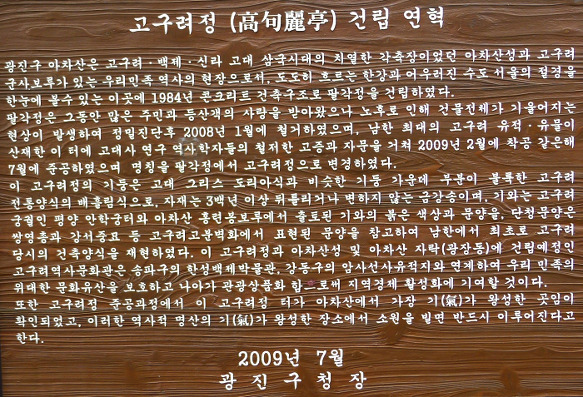 고구려정 (高句麗亭) 건립 연혁
광진구 아차산은 고구려·백제·신라 고대 삼국시대의 치열한 각축장이었던 아차산성과 고구려
군사보루가 있는 우리민족 역사의 현장으로서, 도도히 흐르는 한강과 어우러진 수도 서울의 절경을
한눈에 볼수 있는 이곳에 1984년 콘크리트 건축구조로 팔각정을 건립하였다.
팔각정은 그동안 많은 주민과 등산객의 사랑을 받아왔으나 노후로 인해 건물전체가 기울어지는
현상이 발생하여 정밀진단후 2008년 1월에 철거하였으며, 남한 최대의 고구려 유적·유물이
산재한 이 터에 고대사 연구 역사학자들의 철저한 고증과 자문을 거쳐 2009년 2월에 착공 같은해
7월에 준공하였으며 명칭을 팔각정에서 고구려정으로 변경하였다.
이 고구려정의 기둥은 고대 그리스 도리아식과 비슷한 기둥 가운데 부분이 불룩한 고구려
전통양식의 배흘림식으로, 자재는 3백년 이상 뒤틀리거나 변하지 않는 금강송이며, 기와는 고구려
궁궐인 평양 안학궁터와 아차산 홍련봉보루에서 출토된 기와의 붉은 색상과 문양을, 단청문양은
쌍영총과 강서중묘 등 고구려고분벽화에서 표현된 문양을 참고하여 남한에서 최초로 고구려
당시의 건축양식을 재현하였다. 이 고구려정과 아차산성 및 아차산 자락(광장동)에 건립예정인
고구려역사문화관은 송파구의 한성백제박물관, 강동구의 암사선사유적지와 연계하여 우리 민족의
위대한 문화유산을 보호하고 나아가 관광상품화 함으로써 지역경제 활성화에 기여할 것이다.
또한 고구려정 준공과정에서 이 고구려정 터가 아차산에서 가장 기(氣)가 왕성한 곳임이
확인되었고, 이러한 역사적 명산의 기(氣)가 왕성한 장소에서 소원을 빌면 반드시 이루어진다고
한다.
2009년 7월
광진구청장